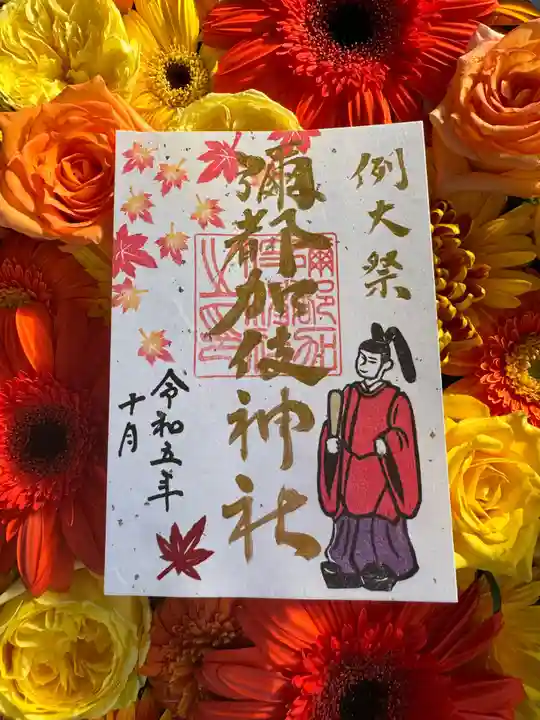 例大祭
彌都加伎神社
令和五年
十月